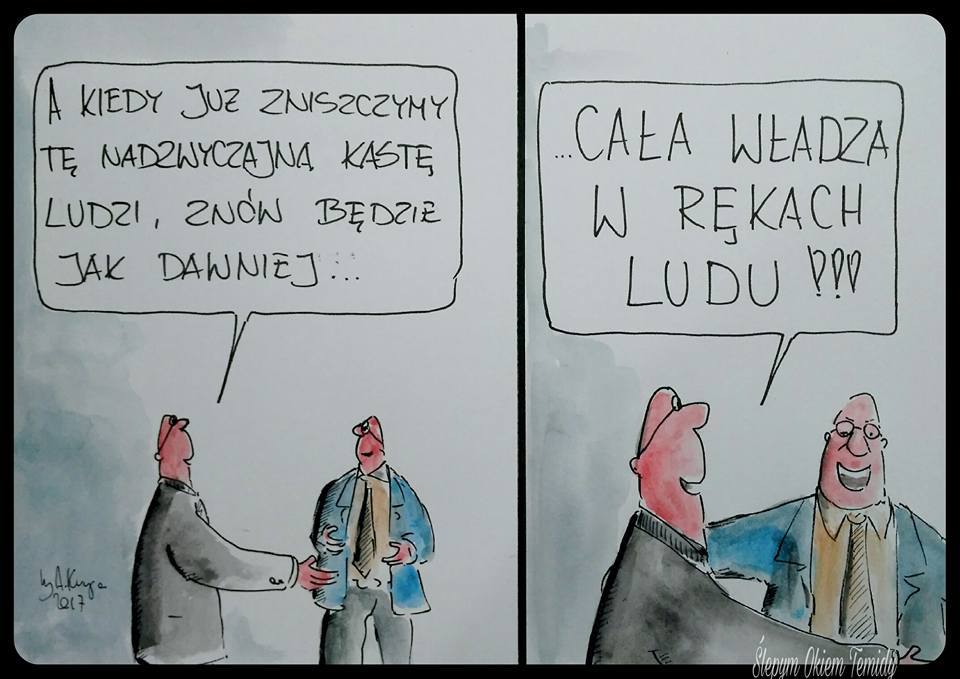 A KIEDY JUŻ ZNISZCZYMY
TĘ NADZWYCZAJNĄ KASTĘ
LUDZI, ZNÓW BĘDZIE
JAK DAWNIEJ...
...CAŁA WŁADZA
W RĘKACH
LUDU !!!
by A.
2017
Ślepym Okiem Temidy